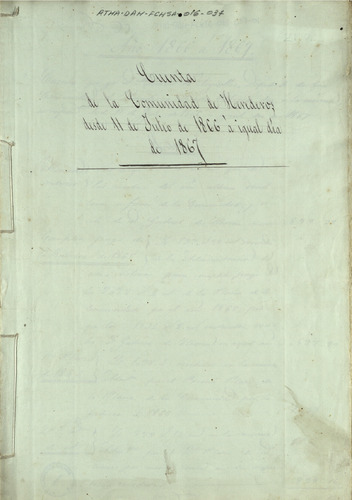 ATHA-DAH-FCNSA-016-034
Cuenta
de la Comunidad de Herederos
desde 11 de Julio de 1866 à igual día
de 1867